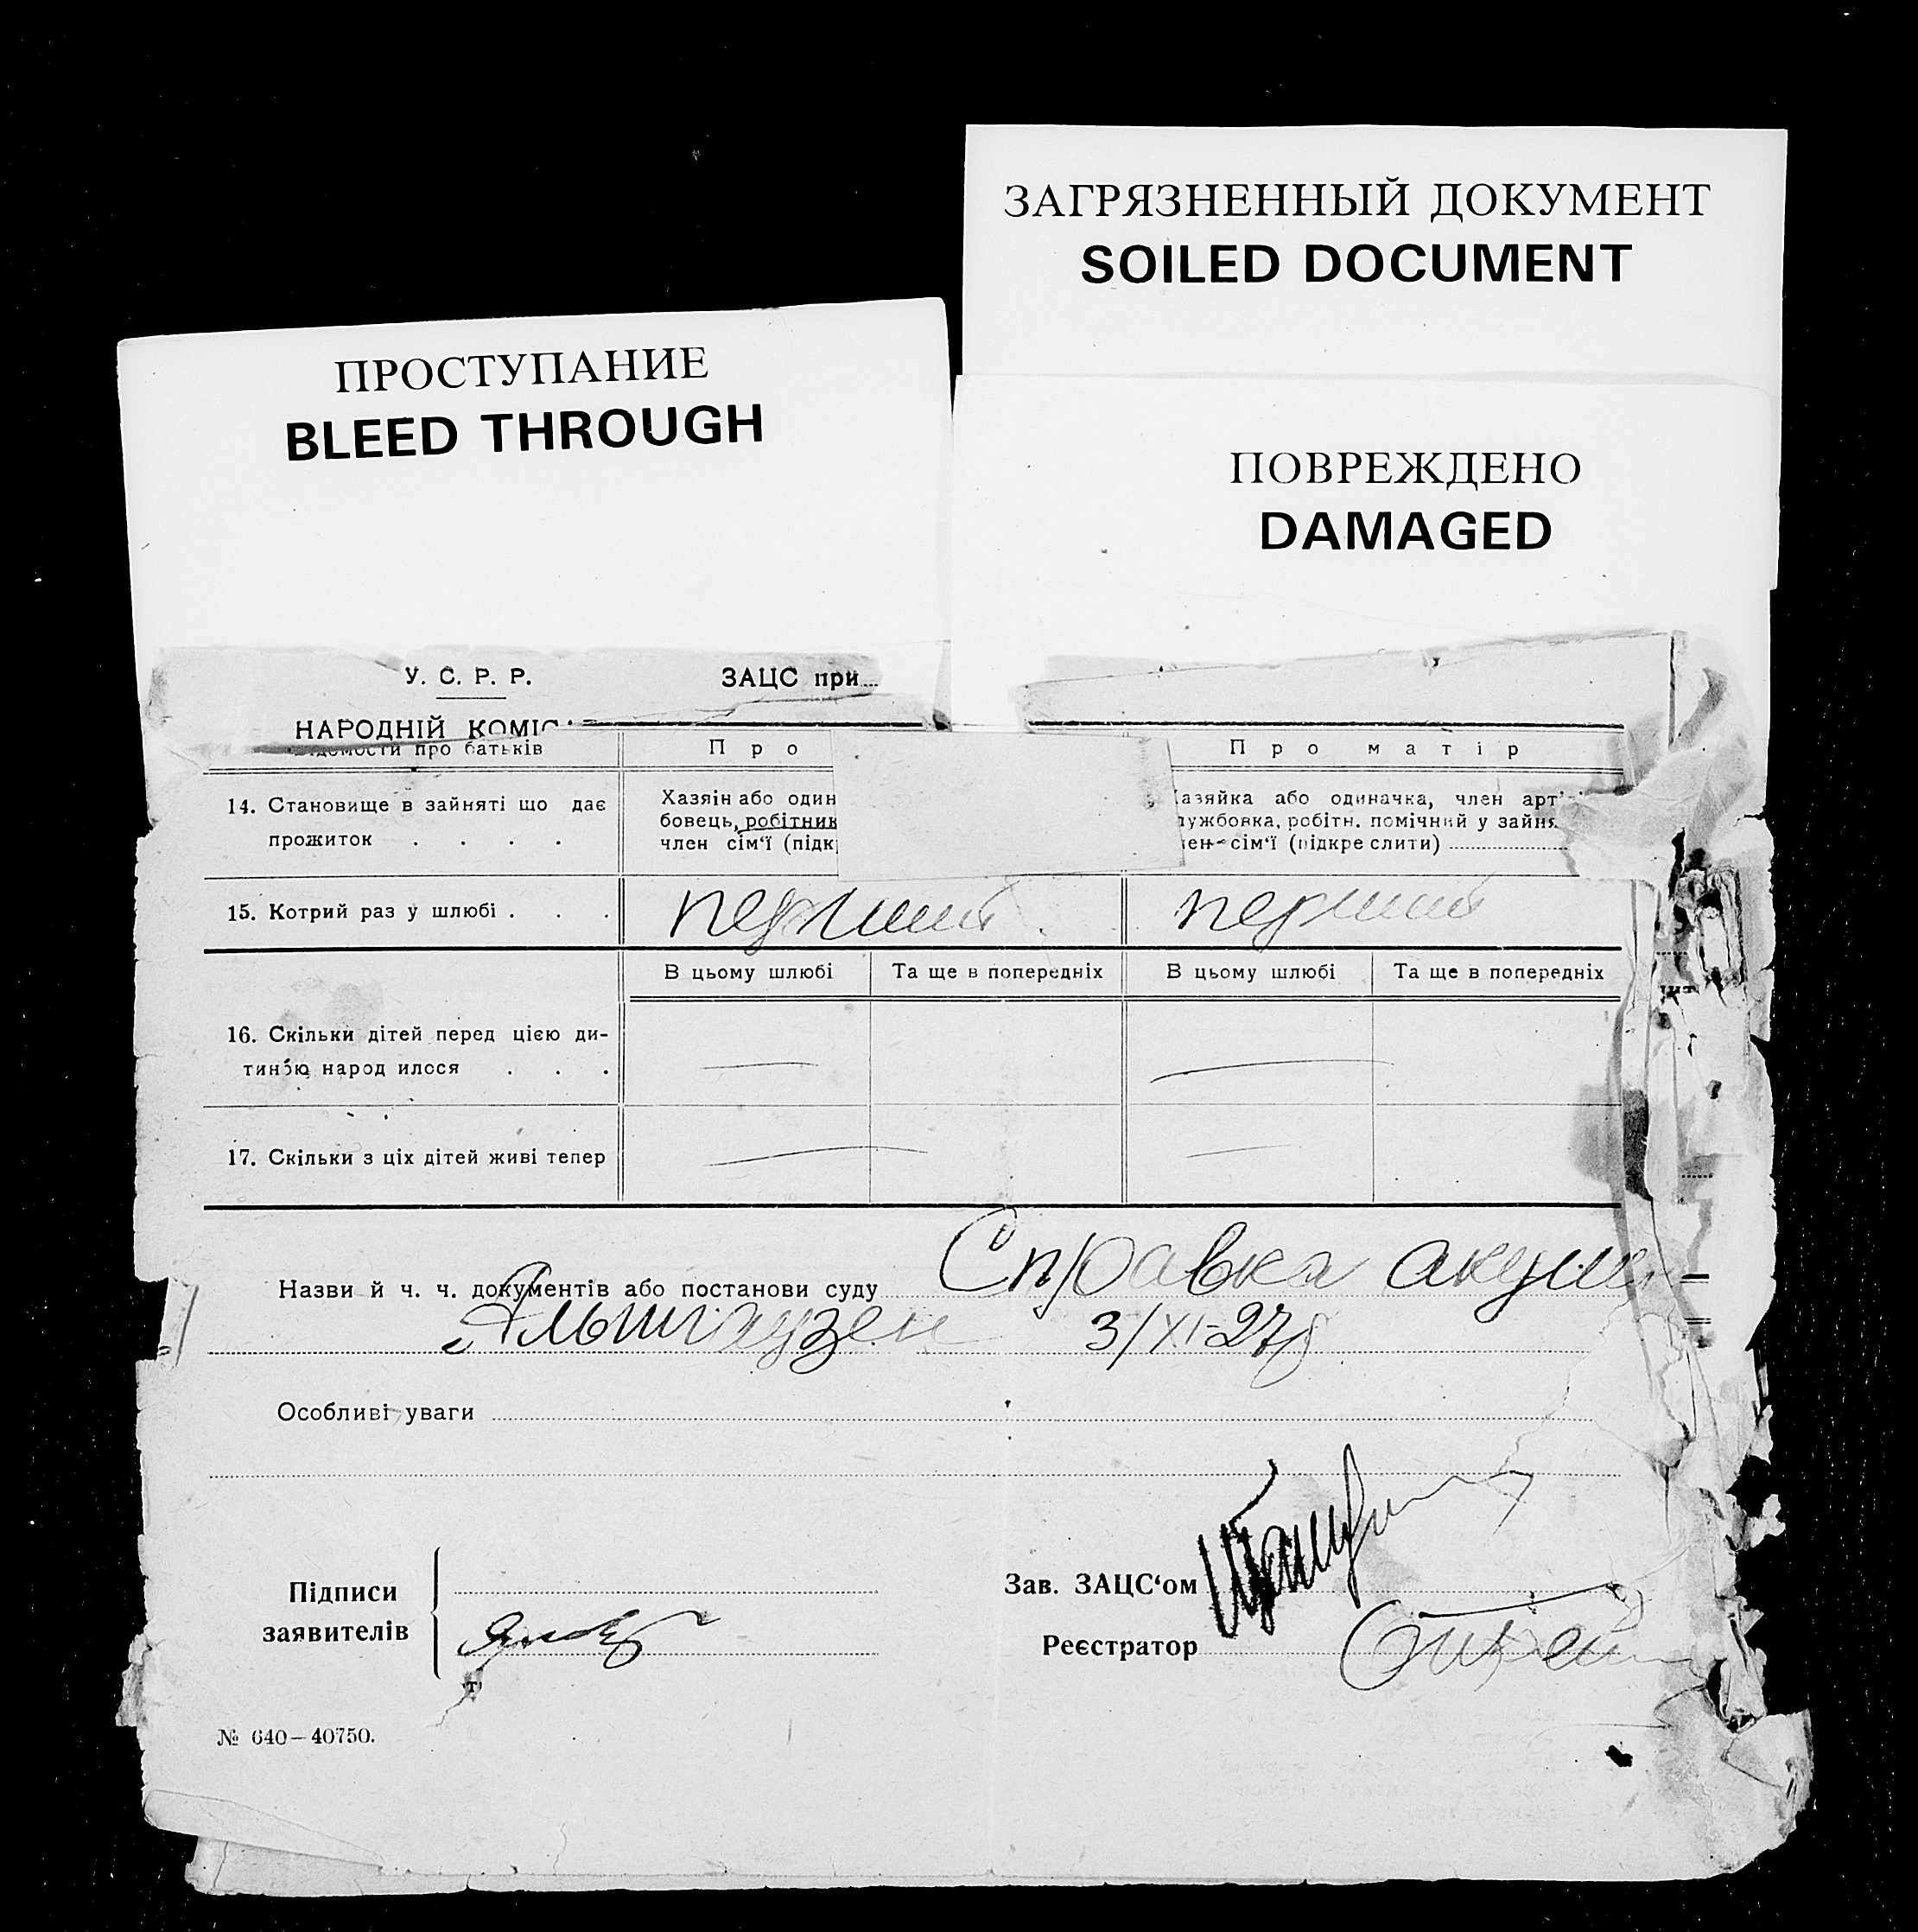 ЗАГРЯЗНЕННЫЙ ДОКУМЕНТ
SOILED DOCUMENT
ПРОСТУПАНИЕ
BLEED THROUGH
ПОВРЕЖДЕНО
DAMAGED
У. С. Р. Р. ЗАЦС при
НАРОДНІЙ
про батьків Про Про матір
14. Становище в зайняті що дає прожиток . . . .
Хазяін або
робітник
член сім'ї
або одиначка, член
робітн. помічний у
сім'ї (підкреслити)
15. Котрий раз у шлюбі . . . перший перший
В цьому шлюбі Та ще в попередніх В цьому шлюбі Та ще в попередніх
16. Скільки дітей перед цією ди-
тиною народилося . . .
17. Скільки з ціх дітей живі тепер
Назви й ч. ч. документів або постанови суду Справка
Альтгаузен 3/XI-27р
Особливі уваги
Підписи
заявителів
Зав. ЗАЦС‘ом
Реєстратор
№ 640—40750.